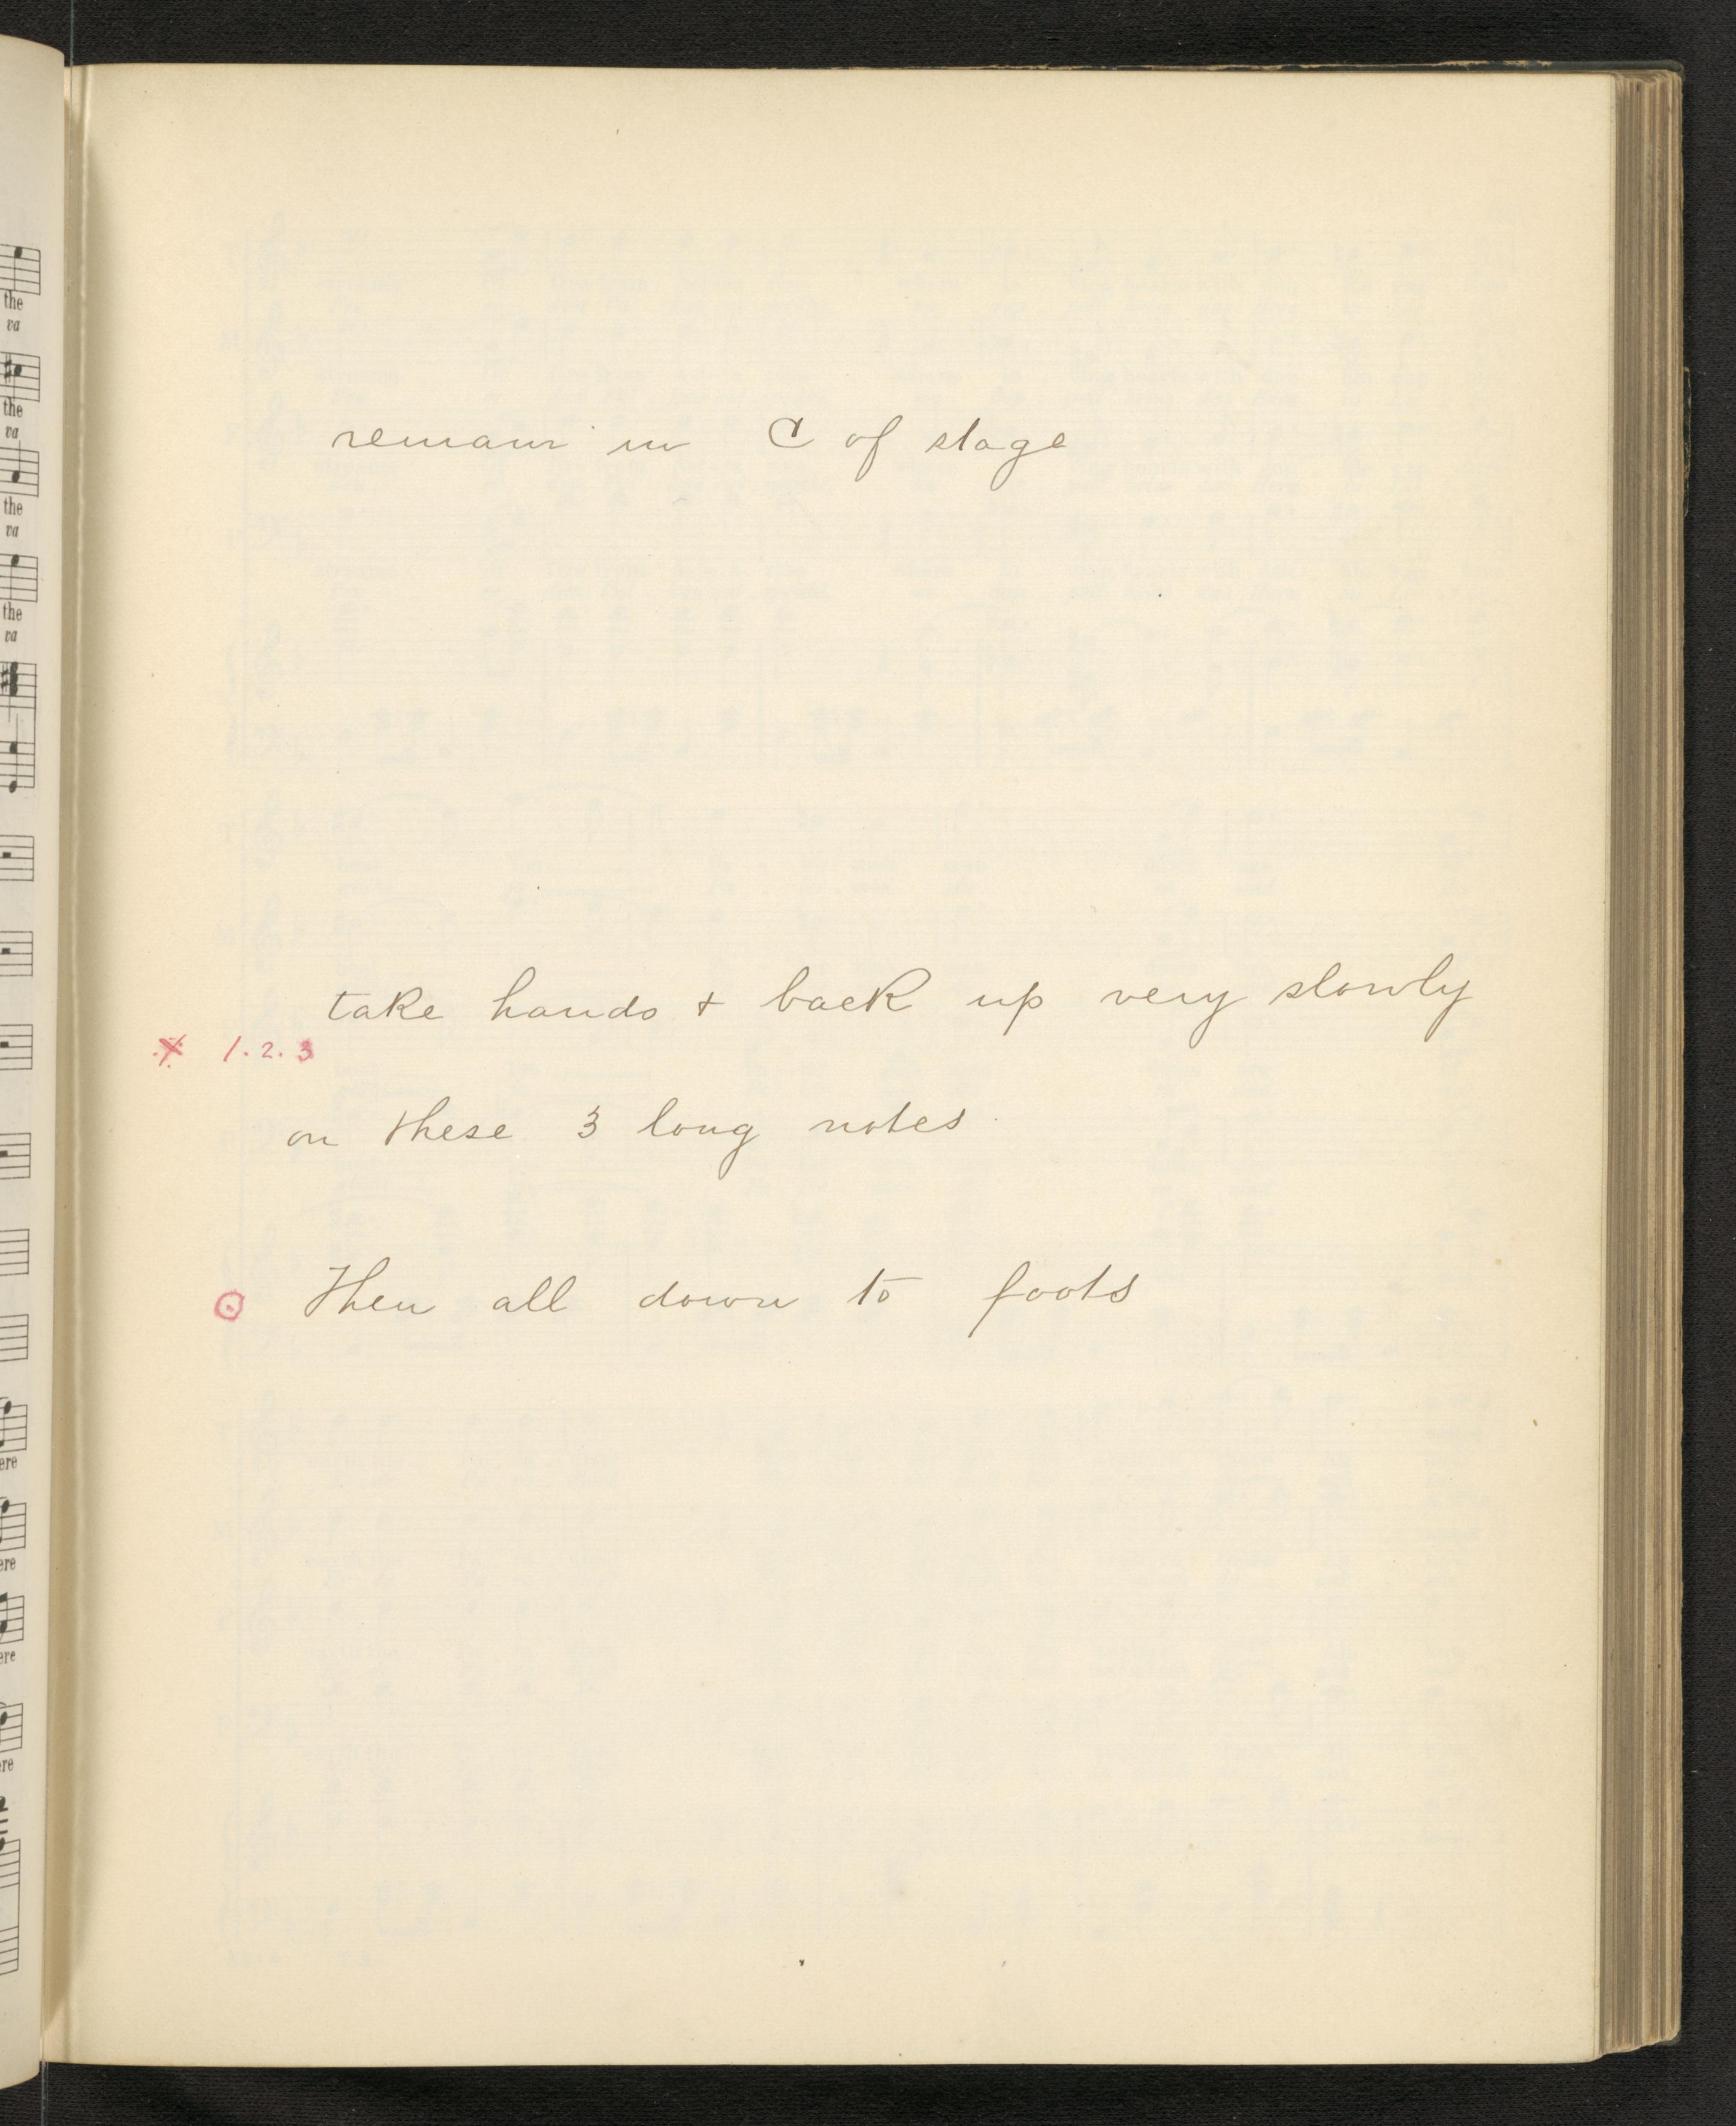 the
va
the
va
the
va
the
va
ere
ere
ere
ere
remain in C of stage
take hands + back up very slowly
※ 1.2.3
on these 3 long notes
⊙ Then all down to foots